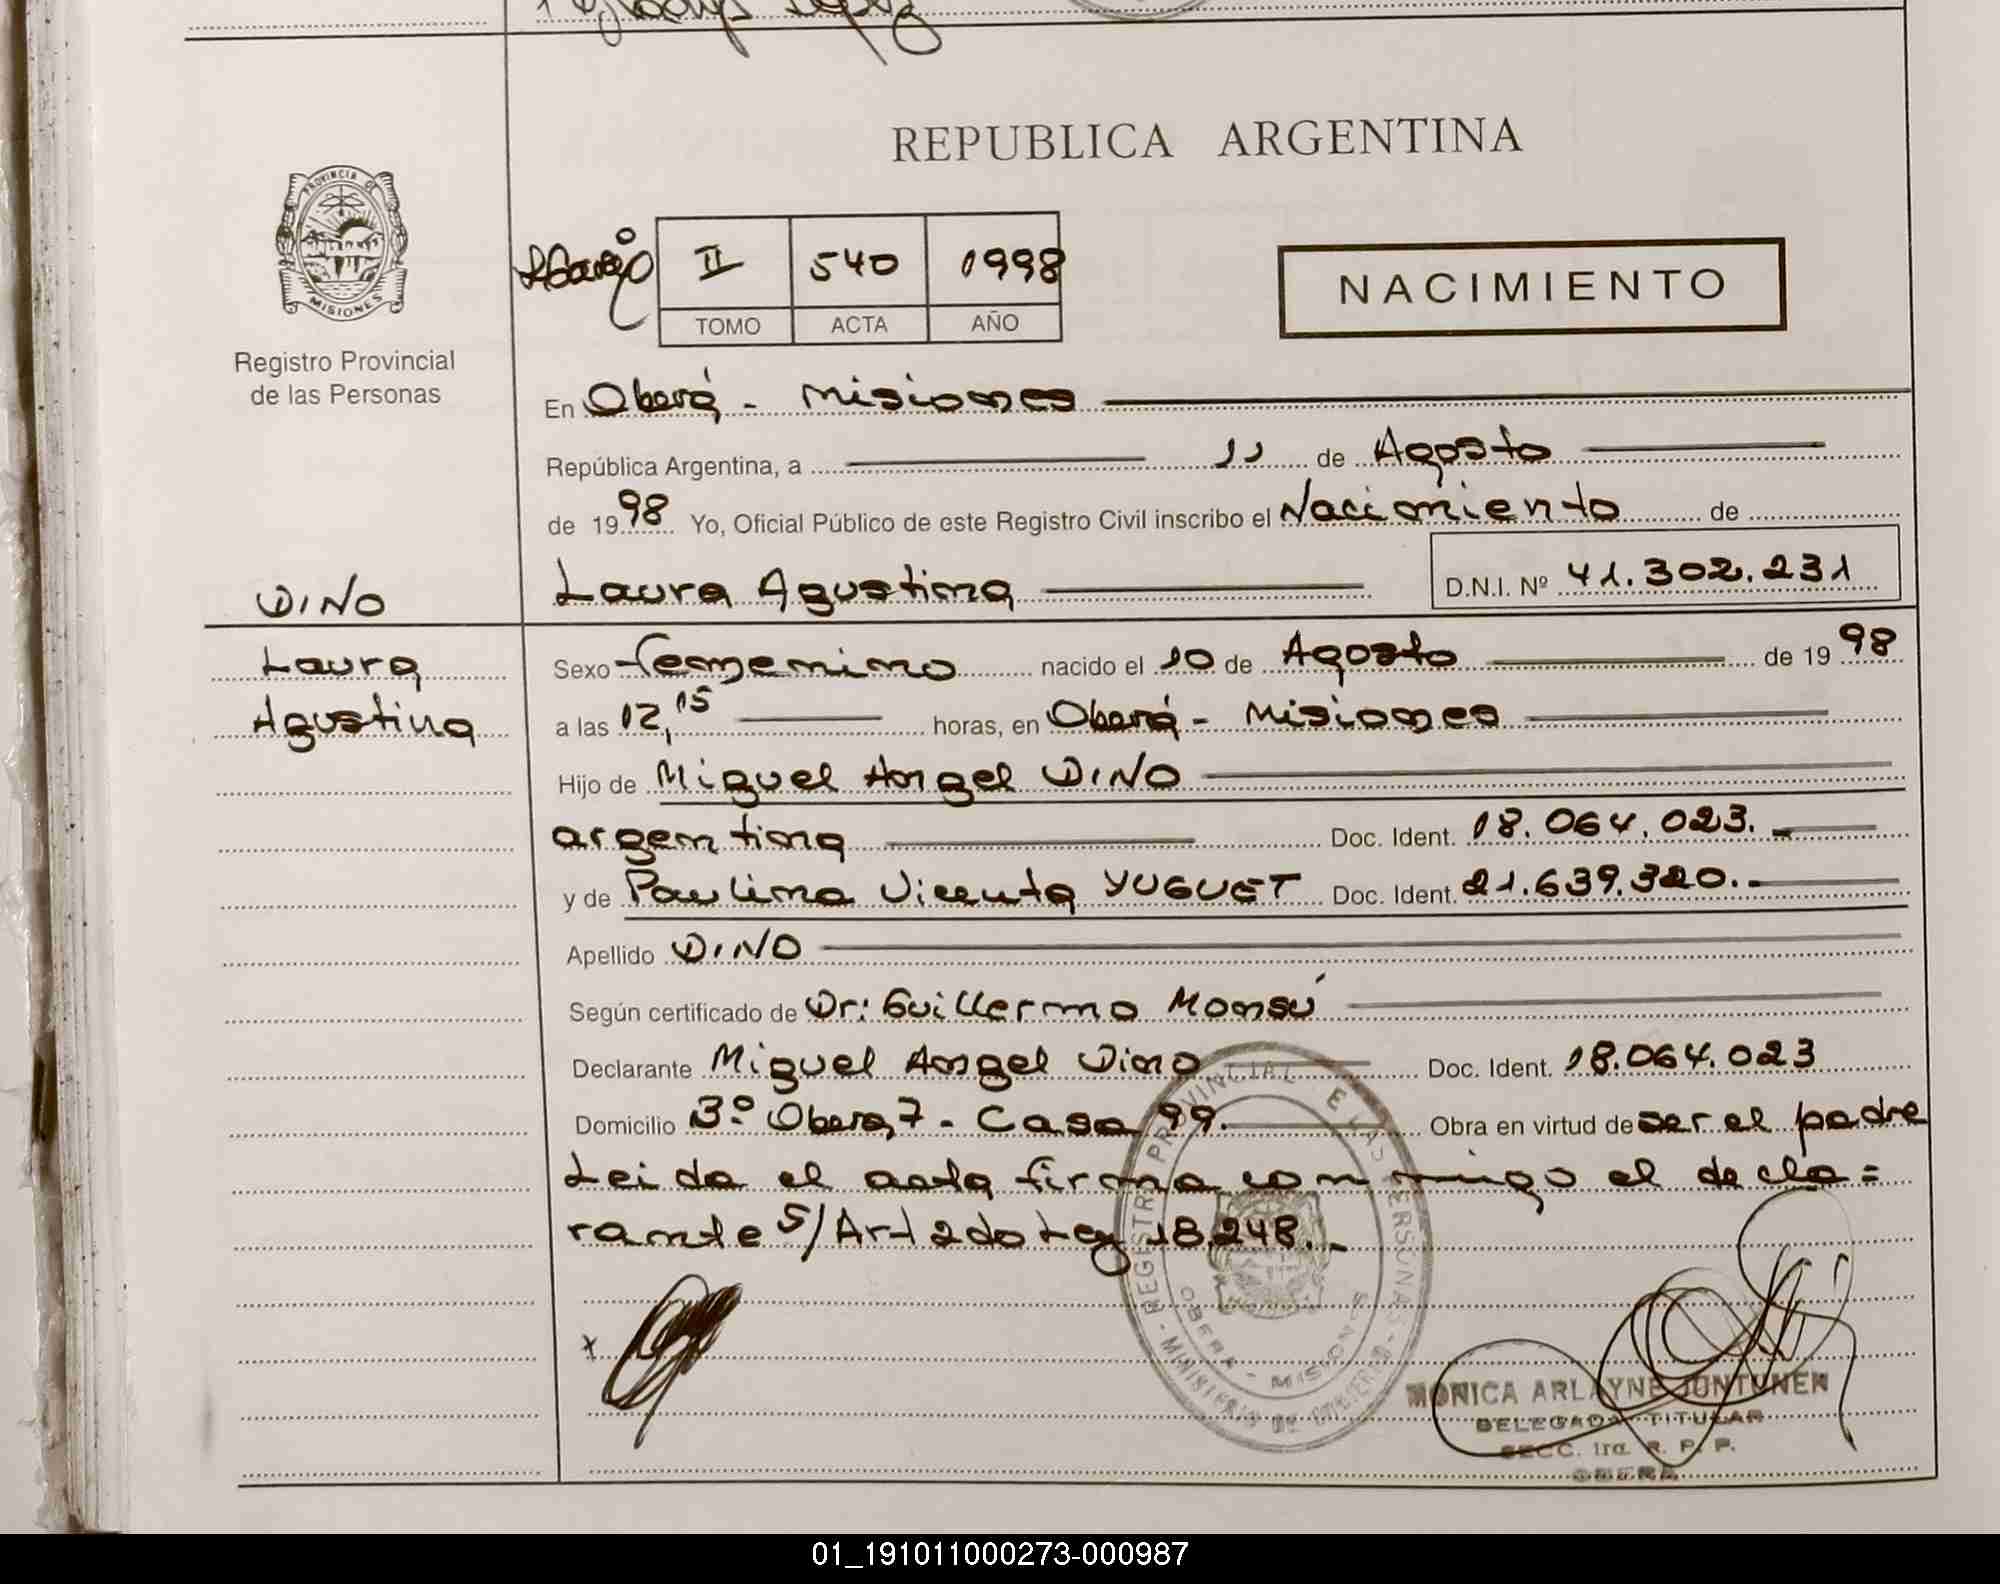 REPUBLICA ARGENTINA
PROVINCIA DE
MISIONES
Registro Provincial
de las Personas
II 540 1998
TOMO ACTA AÑO
NACIMIENTO
En Oberá - Misiones
República Argentina, a 11 de Agosto
de 1998 Yo, Oficial Público de este Registro Civil inscribo el Nacimiento de
Laura Agustina D.N.I. Nº 41.302.231
DINO
Laura
Agustina
Sexo femenino nacido el 10 de Agosto de 1998
a las 12,15 horas, en Oberá - Misiones
Hijo de Miguel Angel DINO
argentina Doc. Ident. 18.064.023.
y de Paulina Vicenta YUGUET Doc. Ident. 21.639.320.-
Apellido DINO
Según certificado de Dr: Guillermo Monsú
Declarante Miguel Angel Dino Doc. Ident. 18.064.023
Domicilio 3º Obera, 7 - Casa 99. Obra en virtud de ser el padre
Leida el acta firma conmigo el decla=
rante S/Art 2do Ley 18.248.-
x
REGISTRO PROVINCIAL DE LAS PERSONAS - MINISTERIO DE GOBIERNO -
OBERA - MISIONES
MONICA ARLAYNE JUNTUNEN
DELEGADA TITULAR
SECC. 1ra. R. P. P.
OBERA
01_191011000273-000987